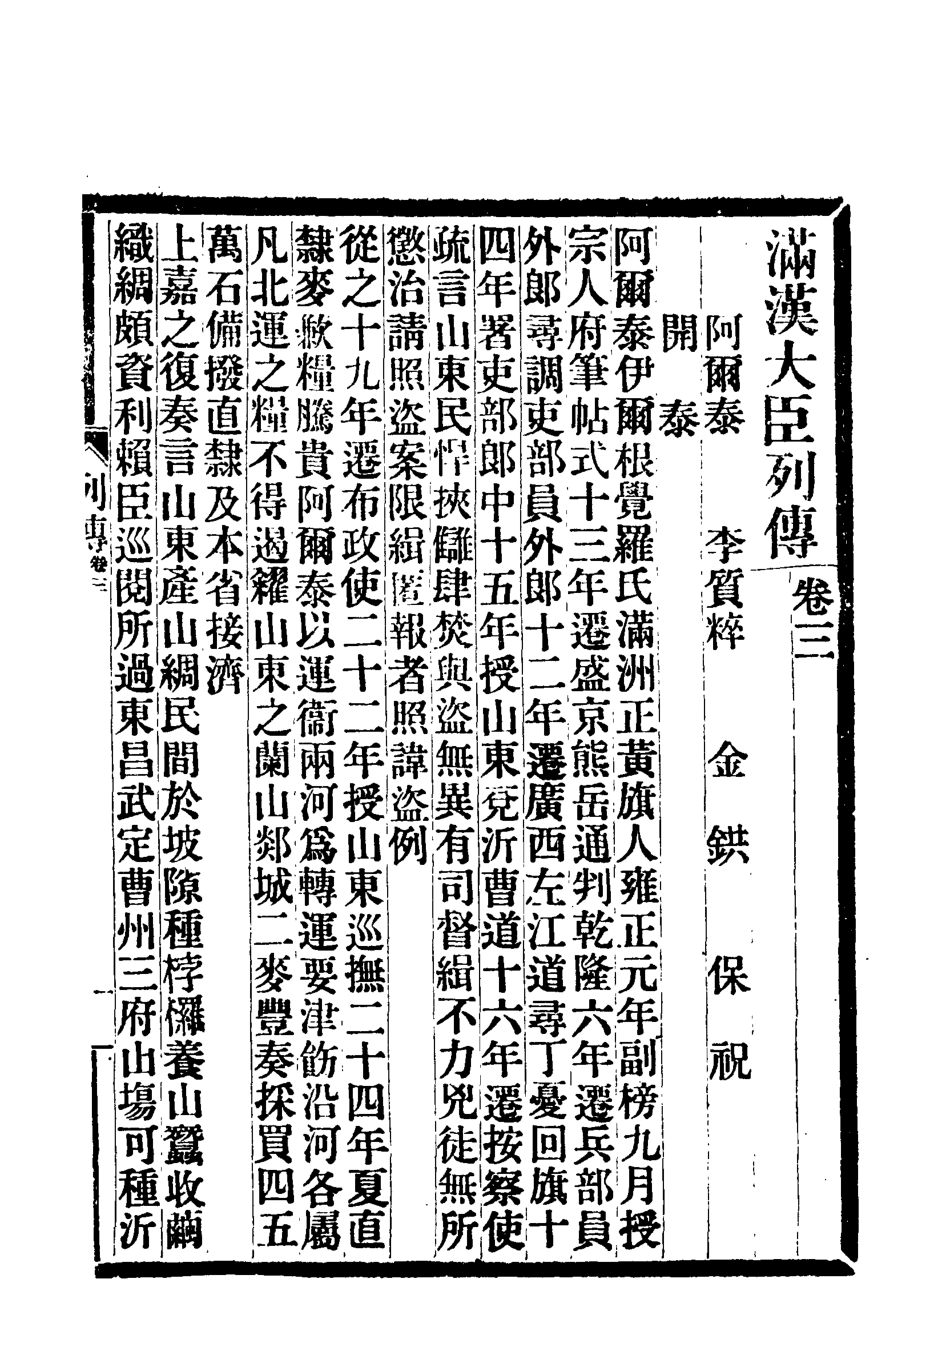 滿漢大臣列傳 卷三
阿爾泰 李質粹 金鉷 保祝
開泰
阿爾泰伊爾根覺羅氏滿洲正黃旗人雍正元年副榜九月授
宗人府筆帖式十三年遷盛京熊岳通判乾隆六年遷兵部員
外郎尋調吏部員外郎十二年遷廣西左江道尋丁憂回旗十
四年署吏部郎中十五年授山東兗沂曹道十六年遷按察使
疏言山東民悍挾讎肆焚與盜無異有司督緝不力兇徒無所
懲治請照盜案限緝匿報者照諱盜例
從之十九年遷布政使二十二年授山東巡撫二十四年夏直
隸麥歉糧騰貴阿爾泰以運衞兩河爲轉運要津飭沿河各屬
凡北運之糧不得遏糴山東之蘭山郯城二麥豐奏採買四五
萬石備撥直隸及本省接濟
上嘉之復奏言山東產山綢民間於坡隙種桲欏養山蠶收繭
織綢頗資利賴臣巡閱所過東昌武定曹州三府山場可種沂
列傳 卷三
一